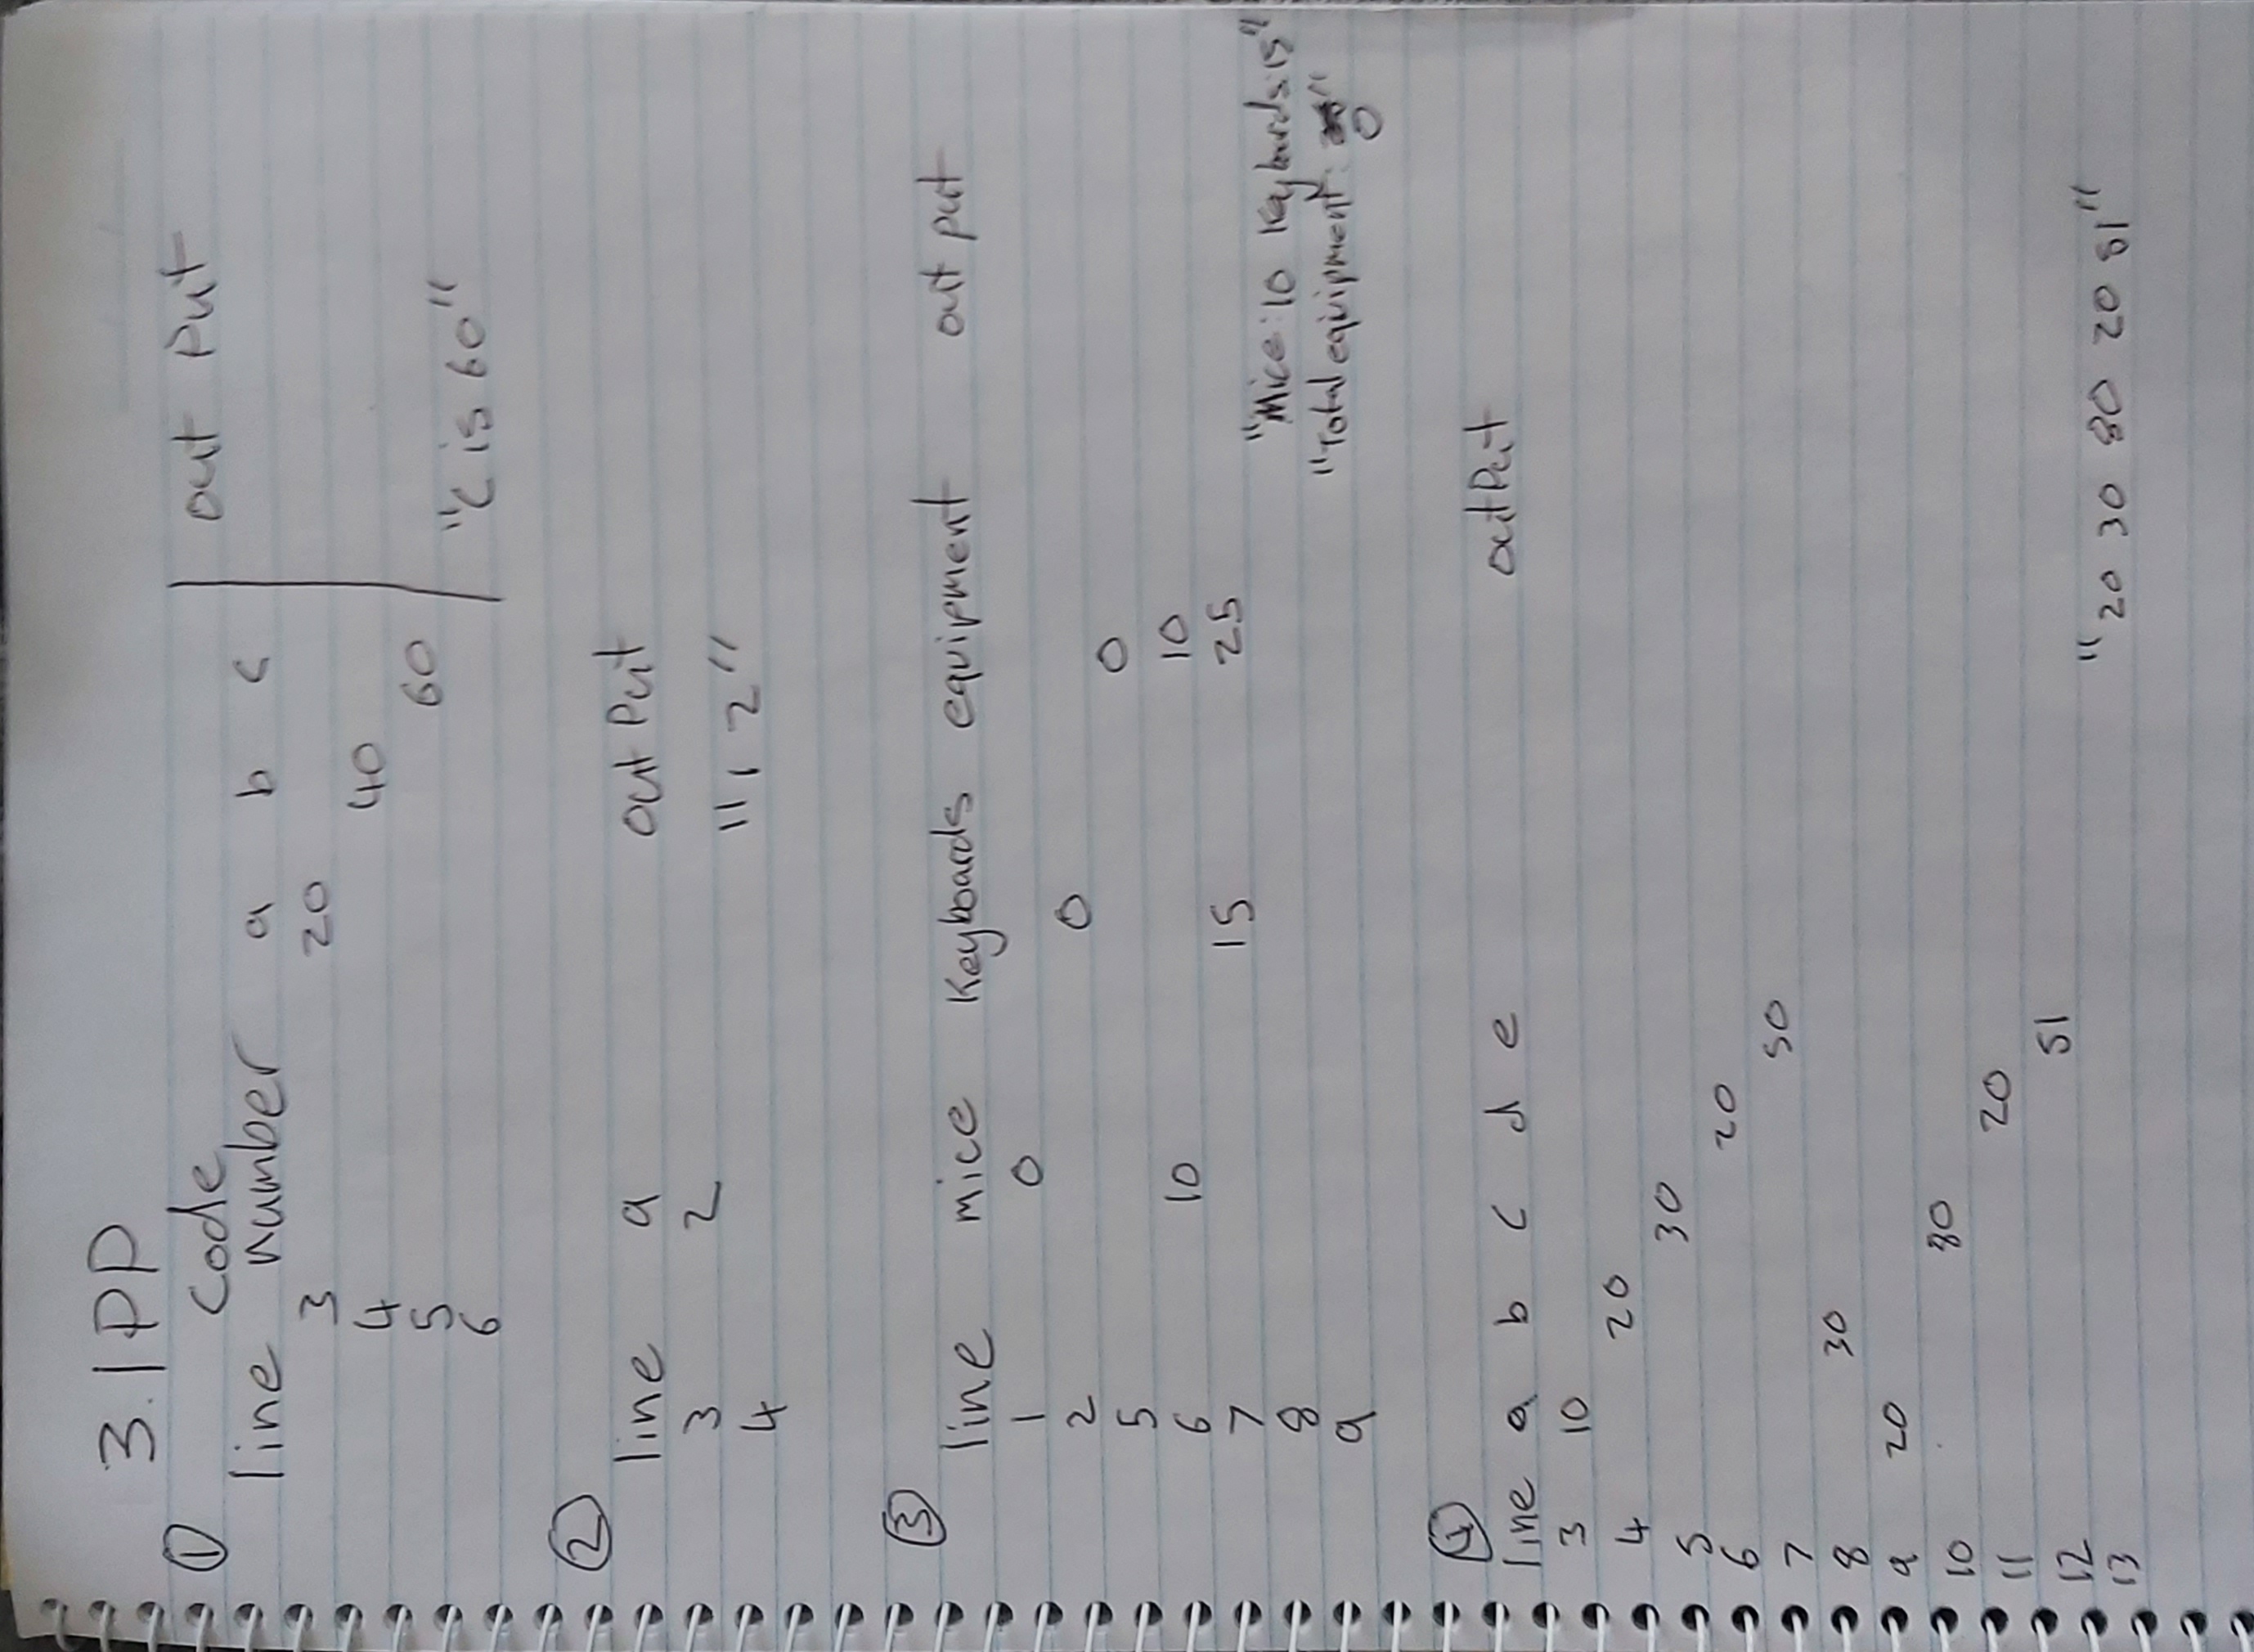 3.1PP
① code
line number a b c | out Put
3 20
4 40
5 60
6 "C is 60"
②
line a out Put
3 2
4 "1 2"
③
line mice Keyboards equipment out put
1 0
2 0
5 0
6 10 10
7 15 25
8 "Mice:10 Keyboards:15"
9 "Total equipment: 0"
④
line a b c d e out Put
3 10
4 20
5 30
6 20
7 50
8 30
9 20
10 80
11 20
12 51
13 "20 30 80 20 51"